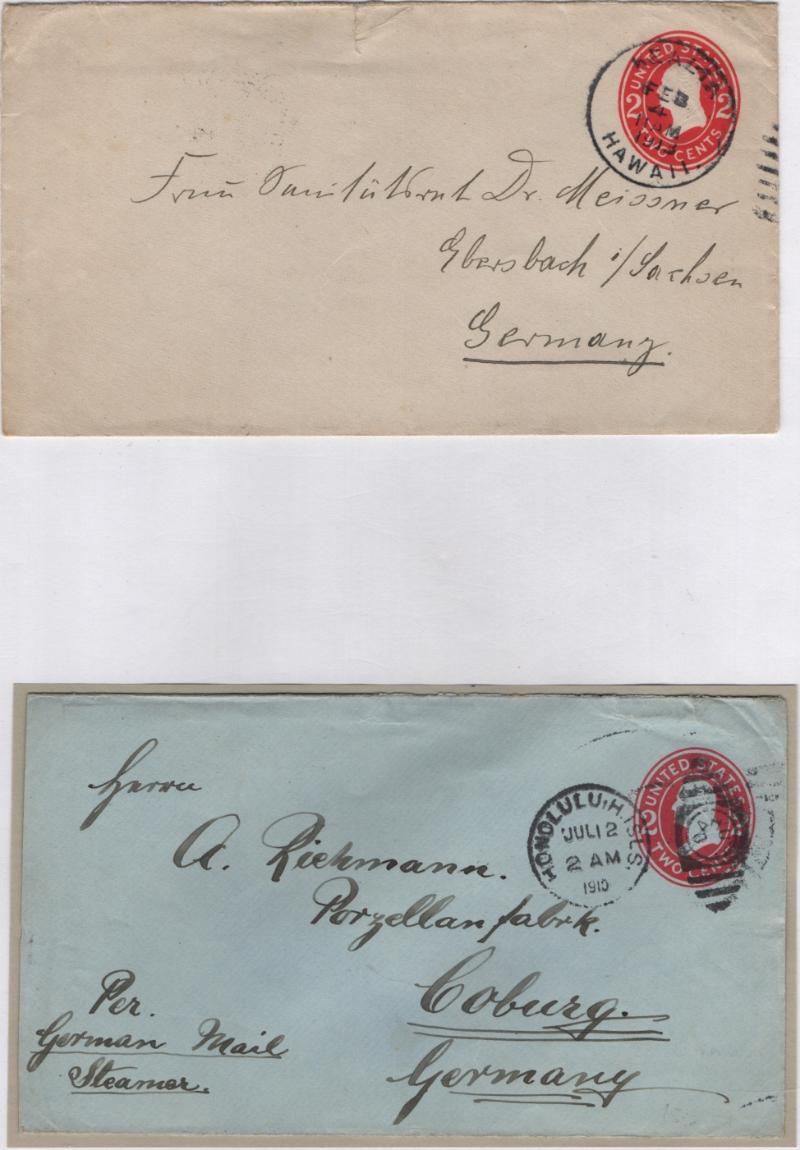 UNITED STATES
2 2
TWO CENTS
KEALIA
FEB
4
AM
HAWAII.
Frau Sanitätsrat Dr. Meissner
Ebersbach i/Sachsen
Germany.
UNITED STATES
2
TWO CENTS
HONOLULU, H. ISLS.
JUL 12
2 AM
1910
Herrn
A. Riehmann.
Porzellanfabrk.
Coburg.
Germany
Per.
German Mail
Steamer.